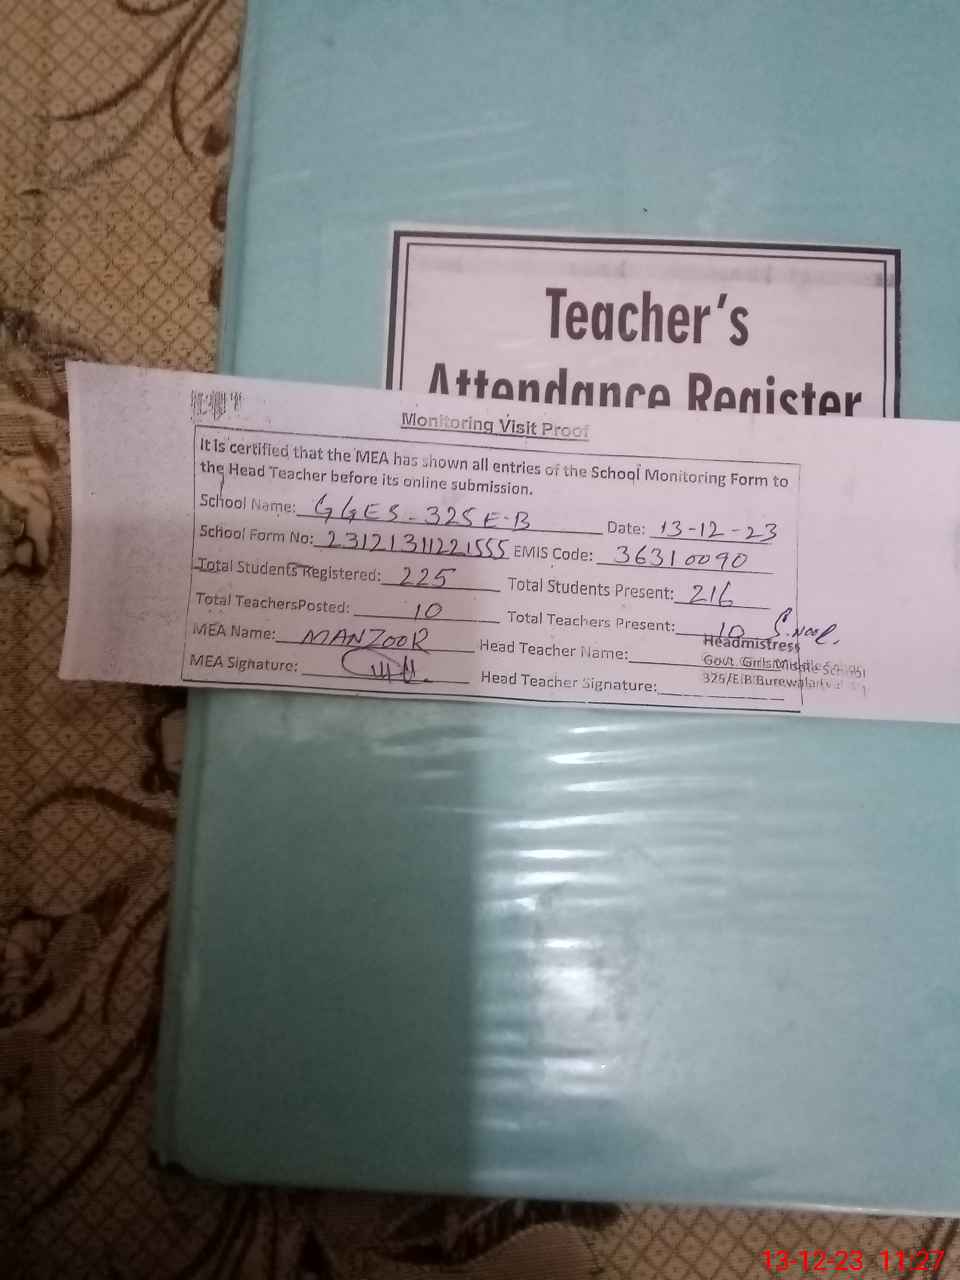 Teacher's
Attendance Register
Monitoring Visit Proof
It is certified that the MEA has shown all entries of the School Monitoring Form to
the Head Teacher before its online submission.
School Name: GGES-325 E-B Date: 13-12-23
School Form No: EMIS Code: 36310090
Total Students Registered: 225 Total Students Present: 216
Total TeachersPosted: 10 Total Teachers Present: 10
S.noor
MEA Name: MANZOOR Head Teacher Name: Headmistress
Govt. Girls Middle School
MEA Signature: Head Teacher Signature: 325/E.B Burewala
13-12-23 11:27